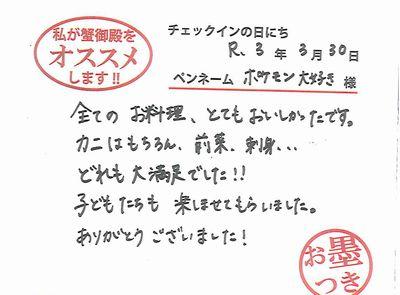 私が蟹御殿を
オススメ
します!!
チェックインの日にち
R.3年3月30日
ペンネーム ポケモン大好き 様
全ての お料理、とてもおいしかったです。
カニはもちろん、前菜、刺身、、、
どれも 大満足でした!!
子どもたちも 楽しませてもらいました。
ありがとうございました!
お墨
つき